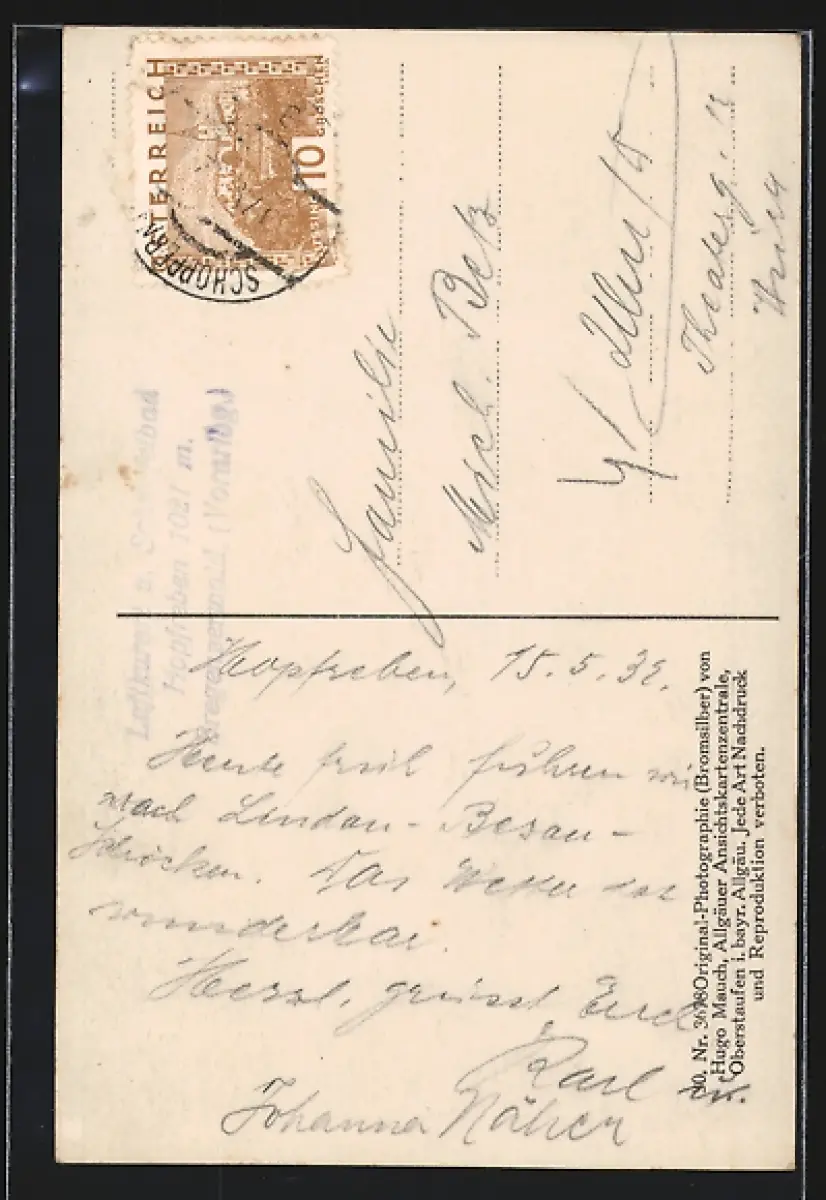 ÖSTERREICH
10
GROSCHEN
SCHOPPERN
Luftkurort u.
Hopfreben 1021 m.
Bregenzerwald (Vorarlbg.)
Familie
Betz
Hopfreben, 15.5.32.
Heute früh fuhren wir
nach Lindau - Bezau -
Schröcken. Das Wetter ist
wunderbar.
Herzl. grüsst Euch
Karl u.
Johanna Näher
Nr. 3698 Original-Photographie (Bromsilber) von
Hugo Mauch, Allgäuer Ansichtskartenzentrale,
Oberstaufen i. bayr. Allgäu. Jede Art Nachdruck
und Reproduktion verboten.